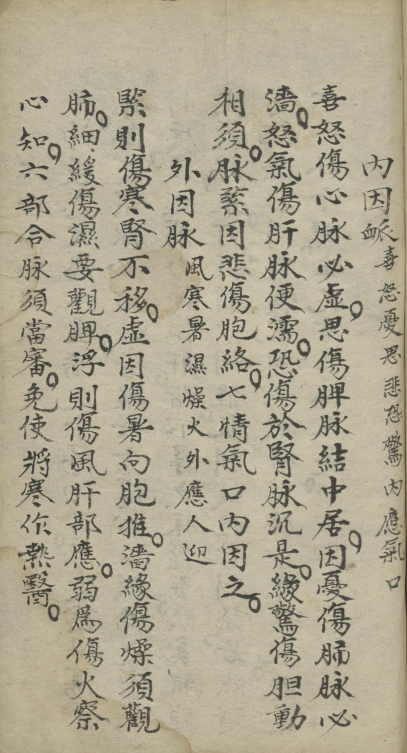 內因脈 喜怒憂思悲恐驚內應氣口
喜怒傷心脉必虛。思傷脾脉結中居。因憂傷肺脉必
濇。怒氣傷肝脉便濡。恐傷於腎脉沉是。緣驚傷胆動
相須。脉緊因悲傷胞絡。七情氣口內因之。
外因脉 風寒暑濕燥火外應人迎
緊則傷寒腎不移。虛因傷暑向胞推。濇緣傷燥須觀
肺。細緩傷濕要觀脾。浮則傷風肝部應。弱為傷火察
心知。六部合脉須當審。免使將寒作熱醫。